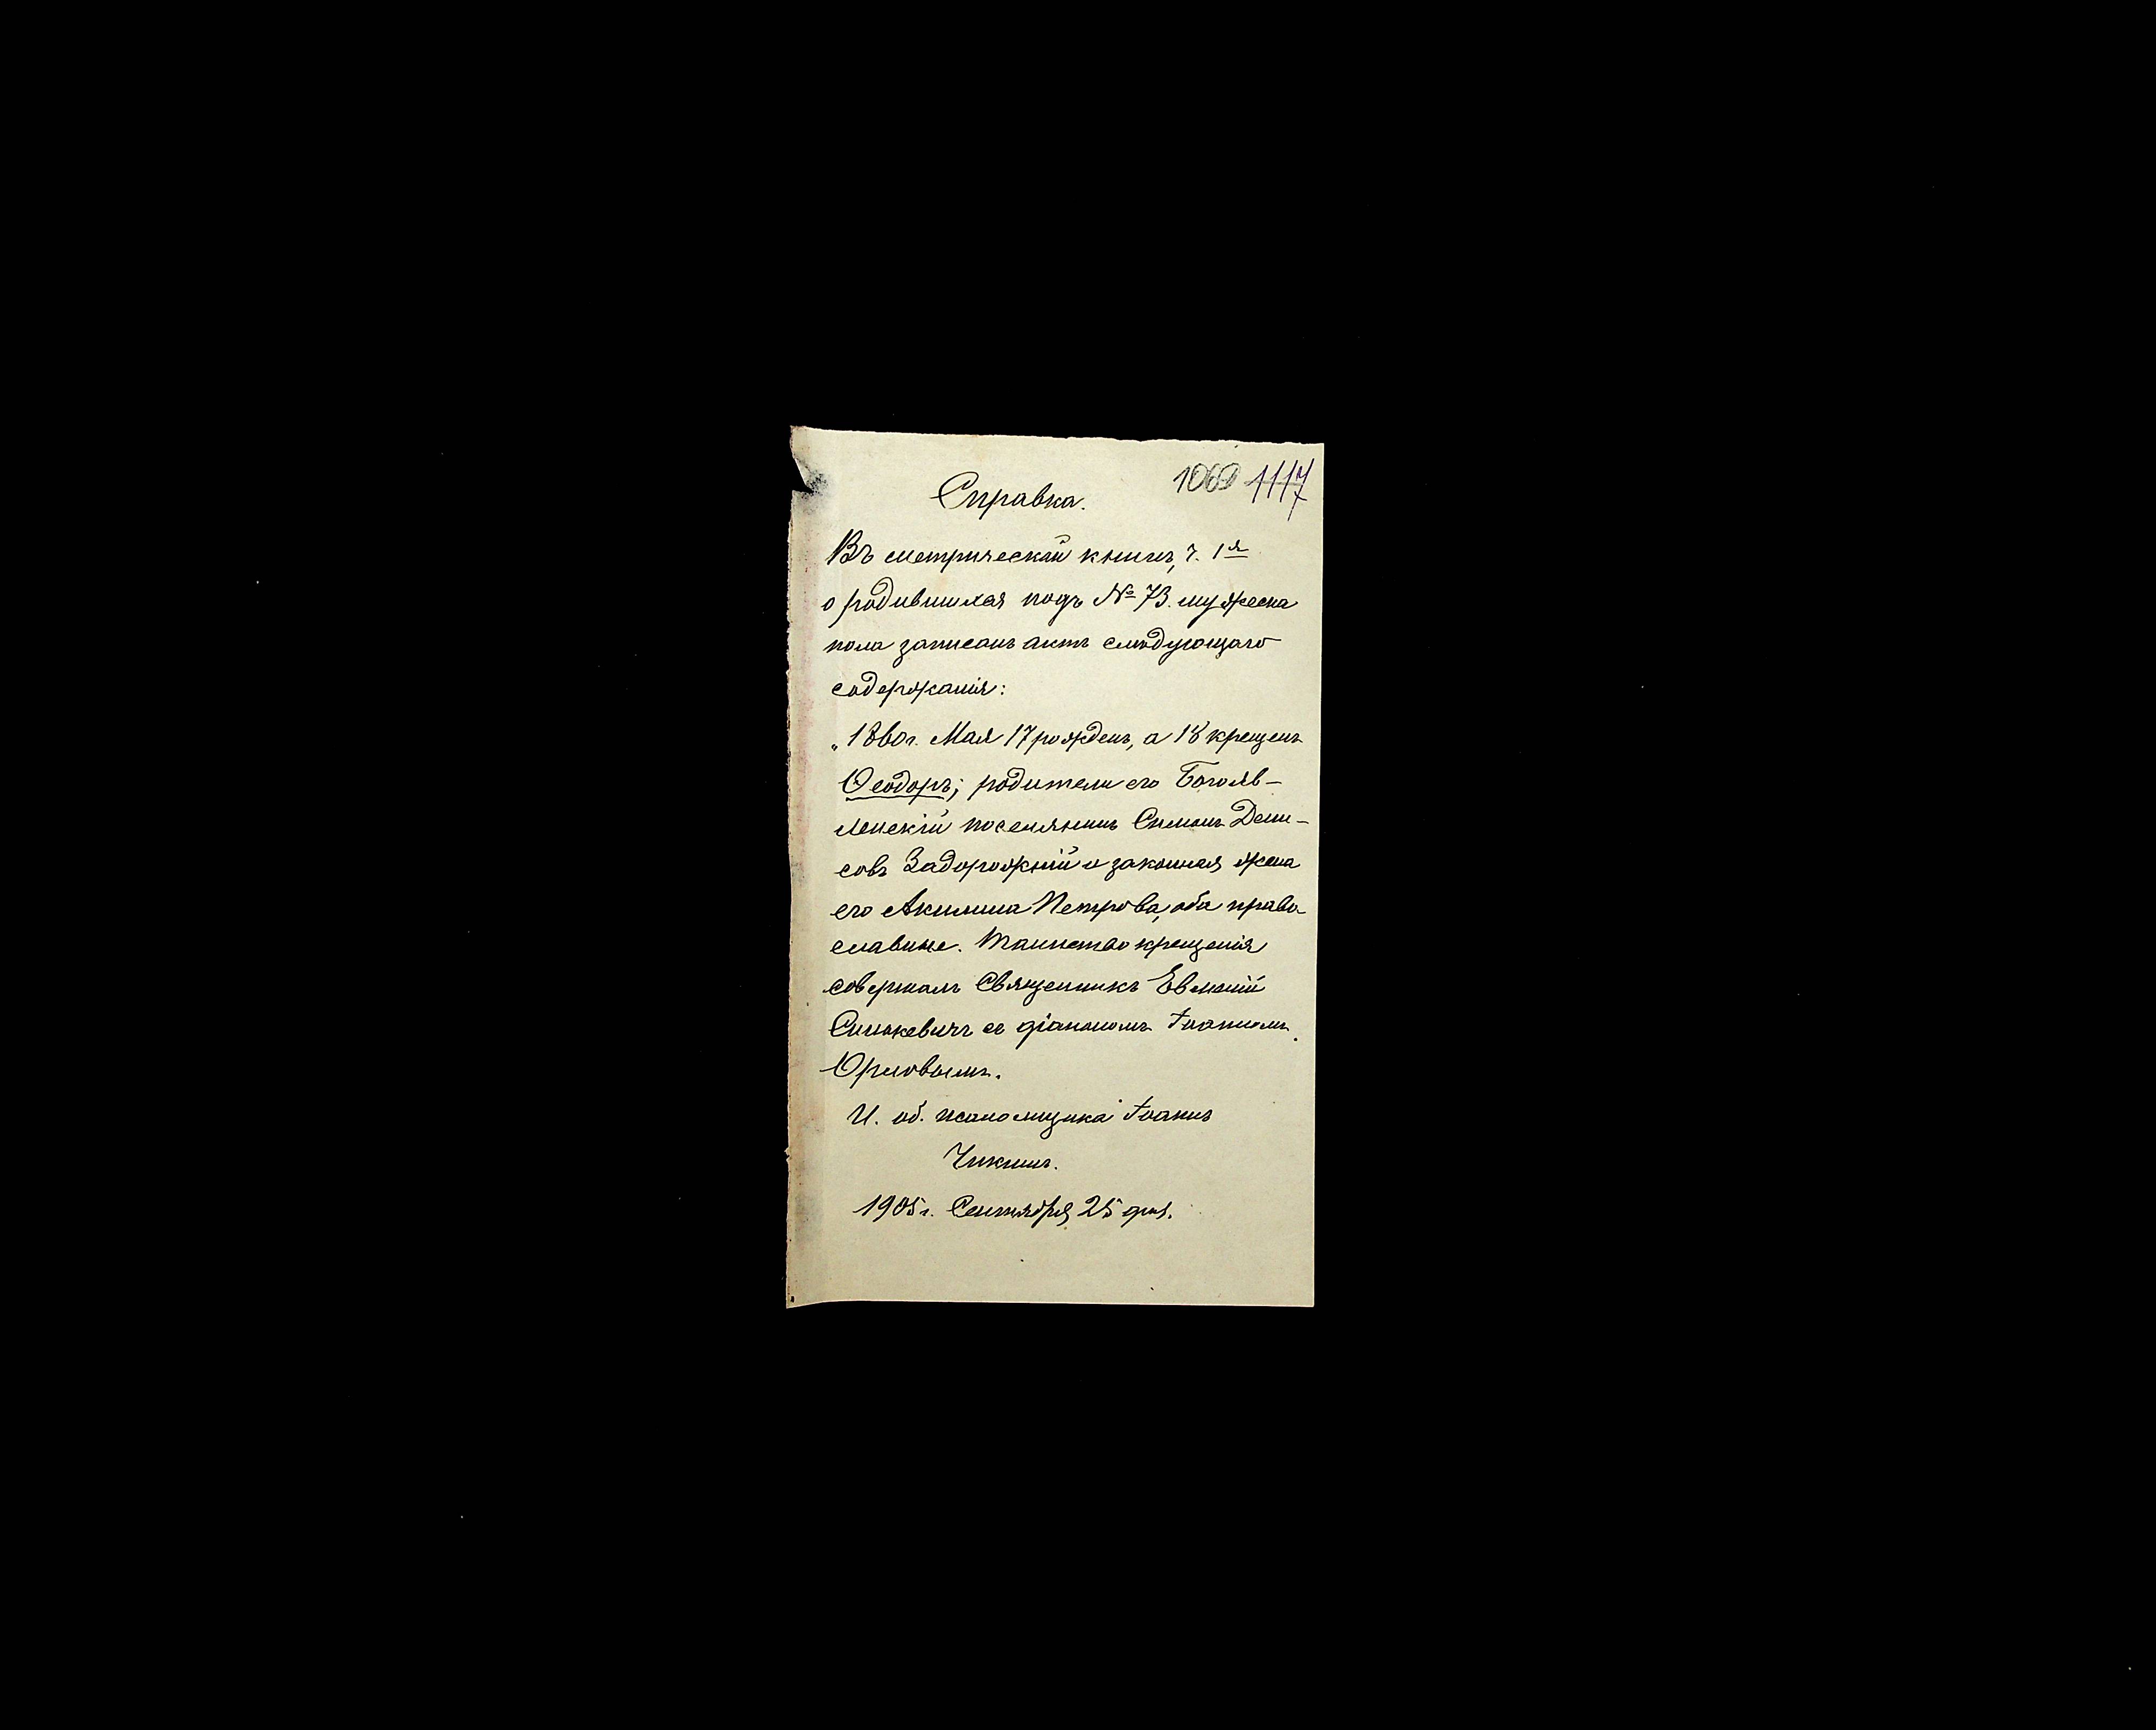 1069 1117
Справка.
Въ метрической книгѣ, ч. 1я
о родившихся подъ № 73. мужеска
пола записанъ актъ слѣдующаго
содержанія:
„1860 г. Мая 17 рожденъ, а 18 крещенъ
Ѳеодоръ; родители его Богояв-
ленскій поселянинъ Симонъ Дени-
совъ Задорожній и законная жена
его Акилина Петрова, оба право
славные. Таинство крещенія
совершалъ Священникъ Евменій
Синькевичъ съ діакономъ Іоанномъ
Орловымъ.
И. об. псаломщика Іоаннъ
Чикинъ.
1905 г. Сентября 25 дня.